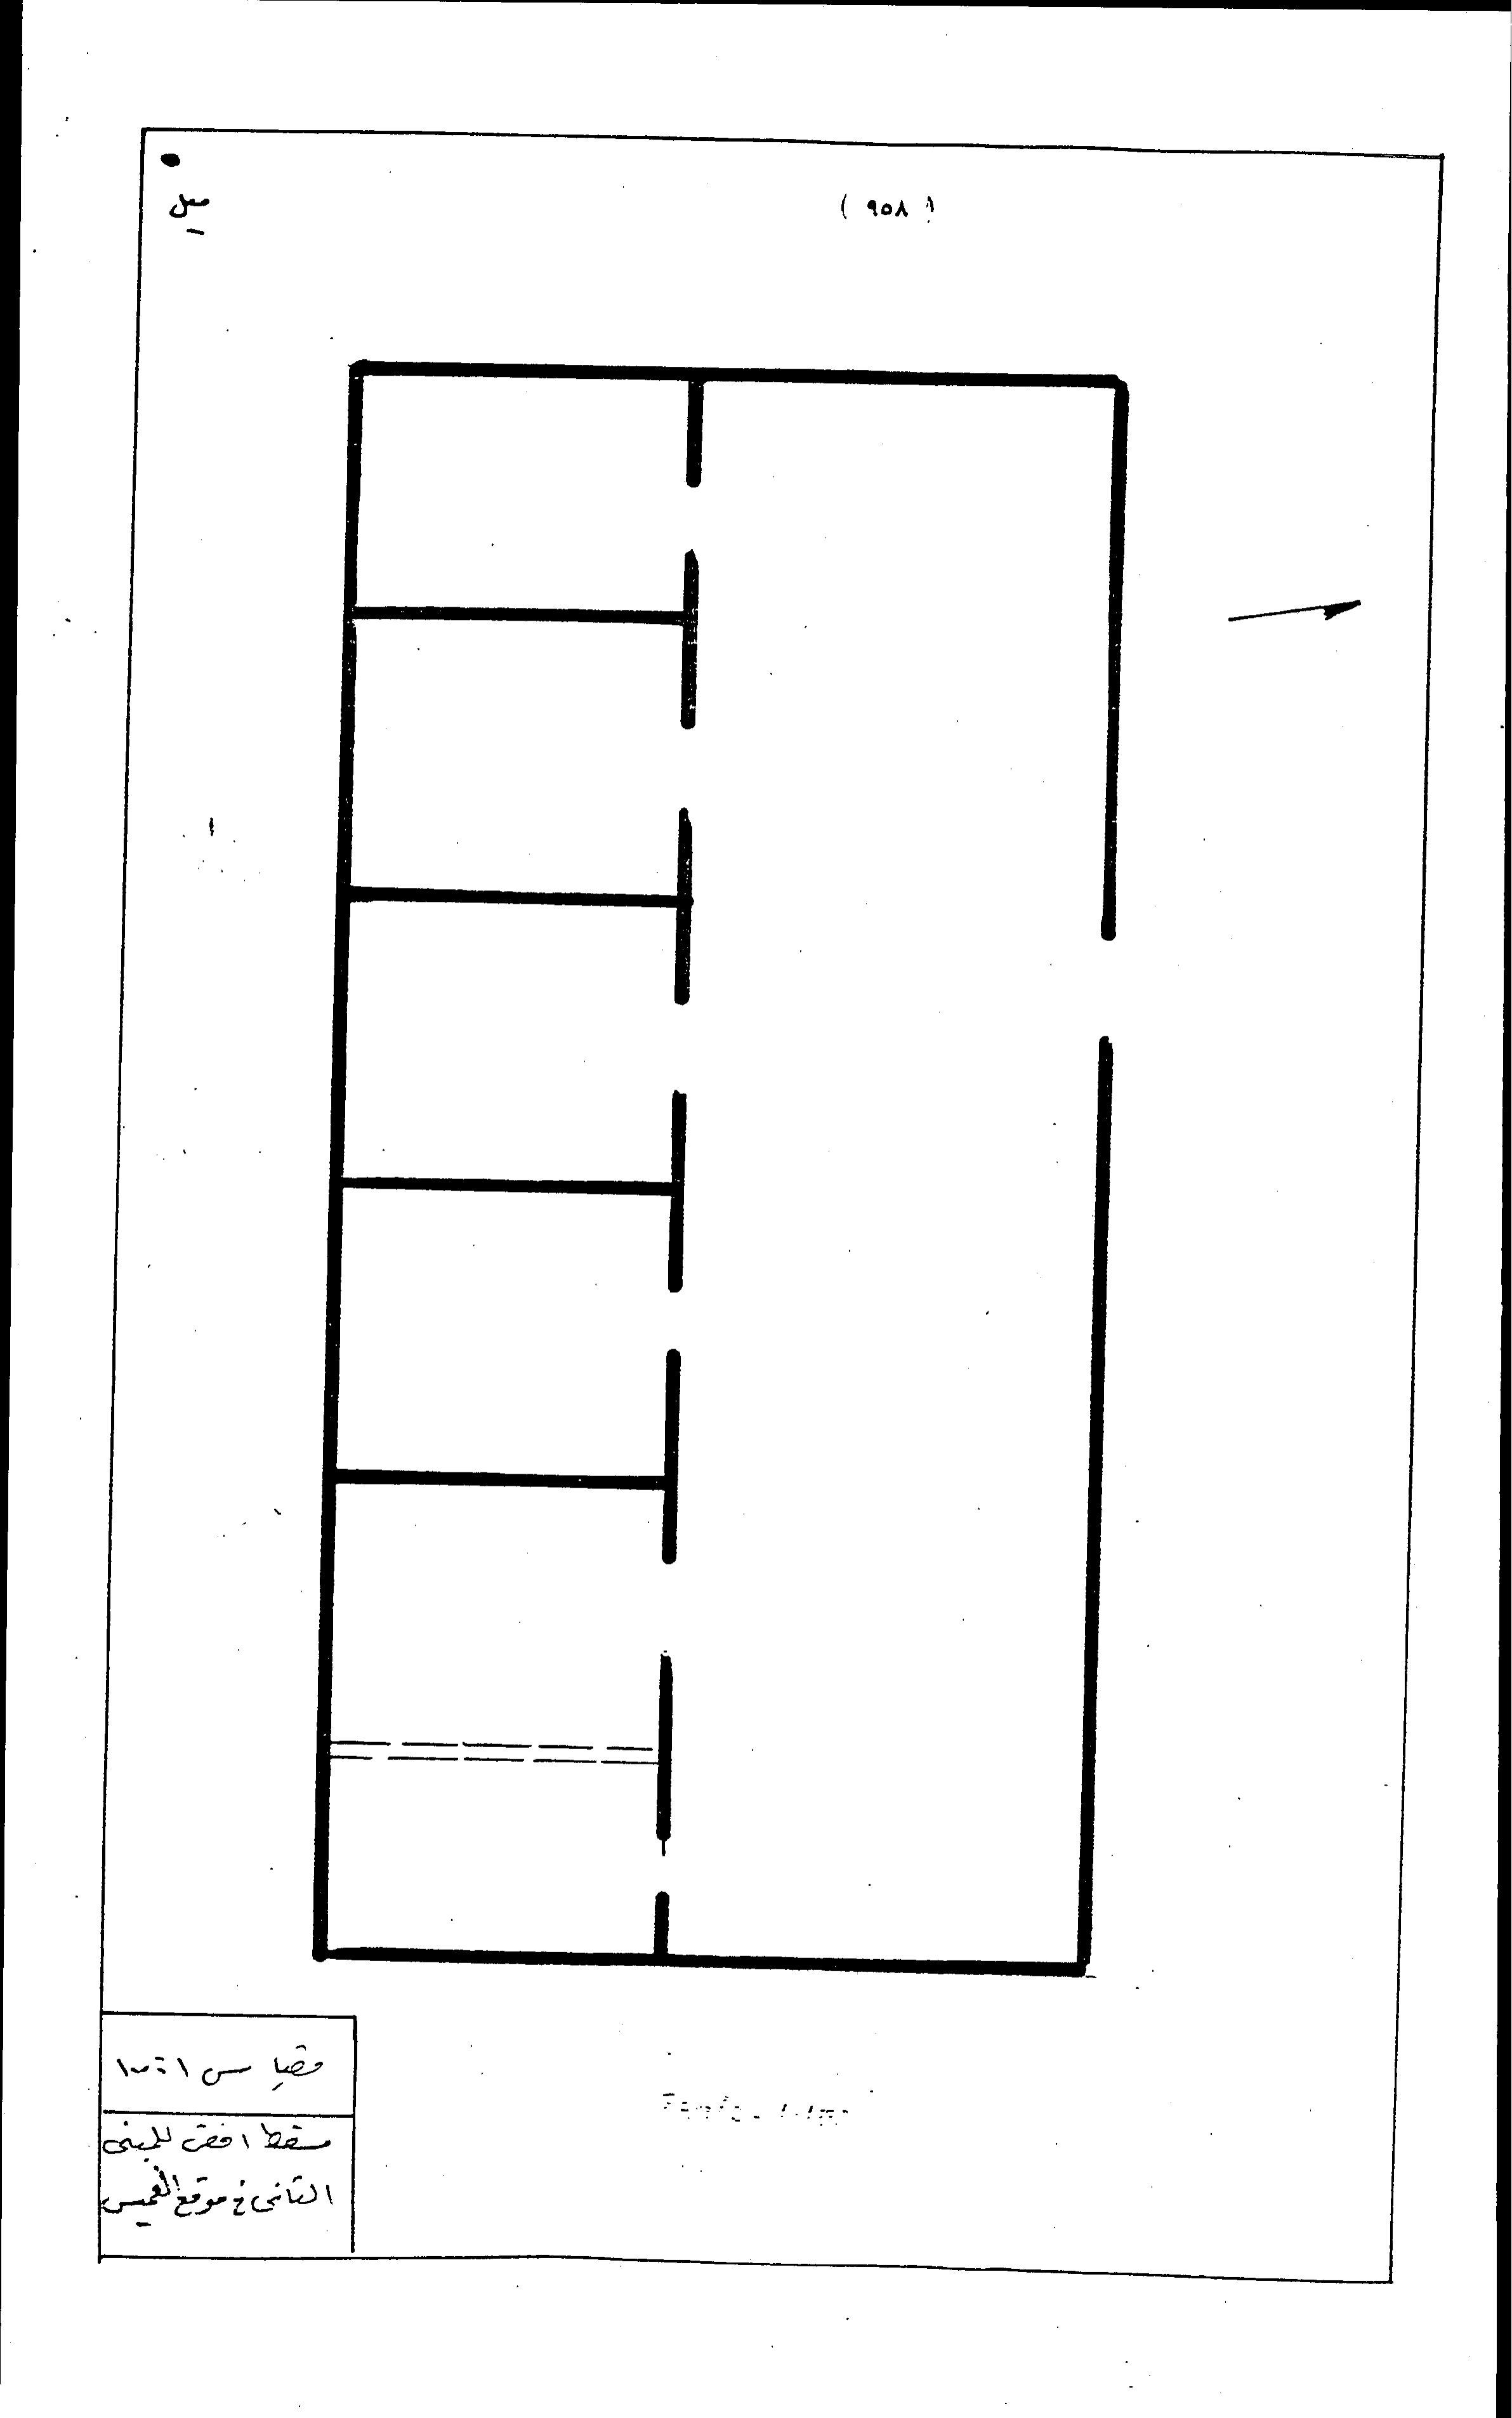 ميل
( ٩٥٨ )
مقياس ١ : ١٠٠
مسقط افقي للمبنى
الثاني في موقع الغميس